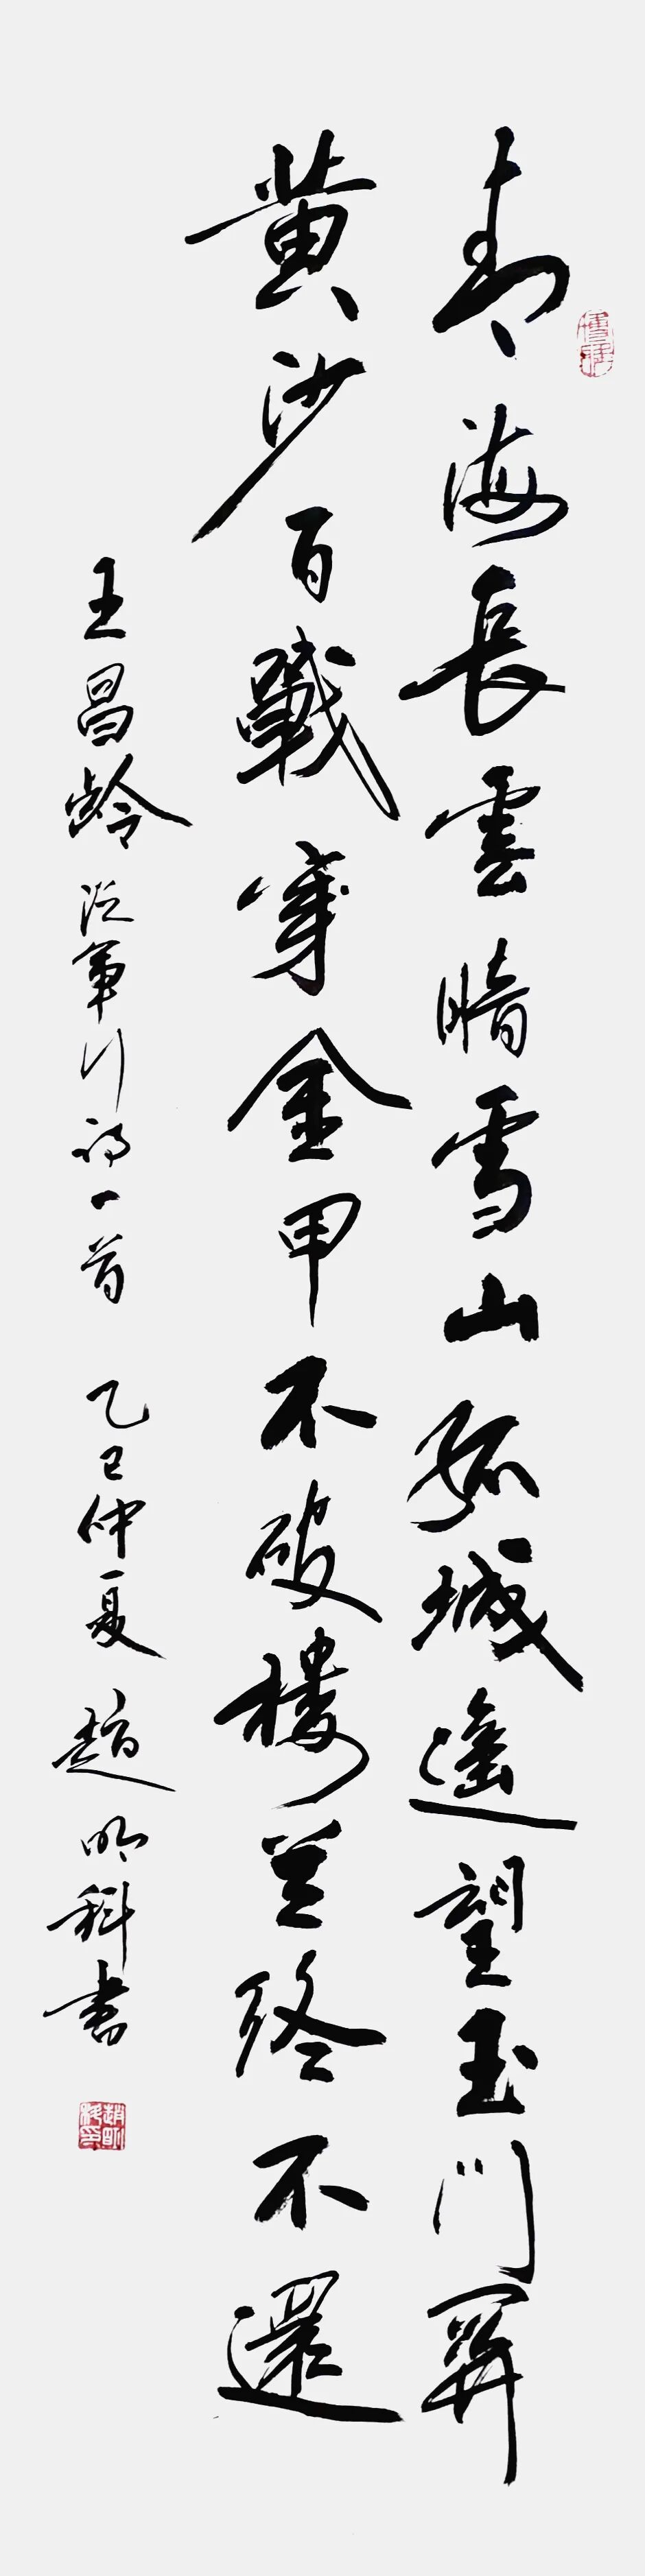 青海長雲暗雪山孤城遥望玉門關
黄沙百戰穿金甲不破樓蘭終不還
王昌齡從軍行詩一首 乙巳仲夏 趙明科書
趙明科印